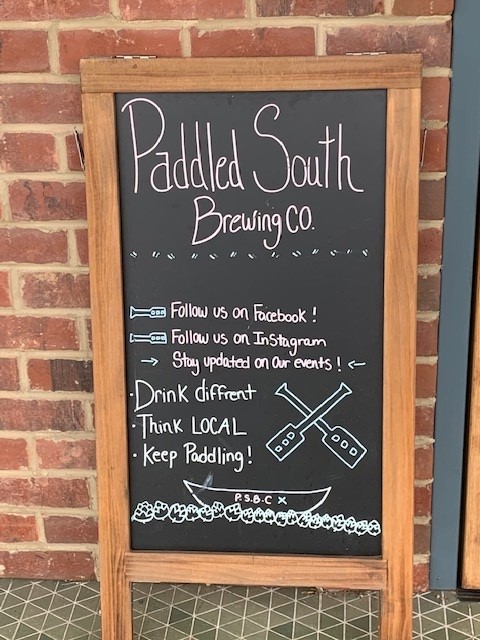 Paddled South
Brewing CO.
Follow us on Facebook!
Follow us on Instagram
→ Stay updated on our events! ←
· Drink diffrent
· Think LOCAL
· Keep Paddling!
P.S.B.C x